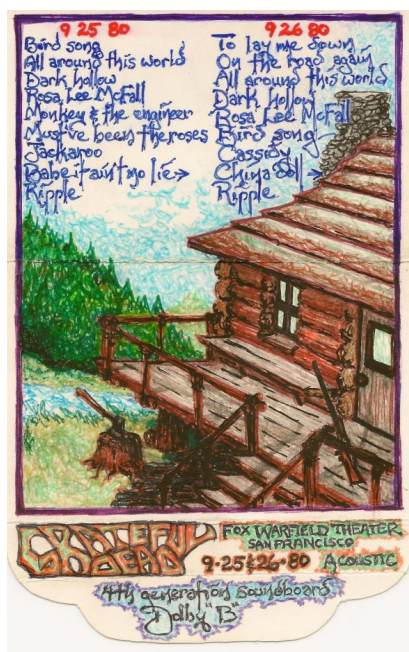 9 25 80
Bird song
All around this world
Dark hollow
Rosa Lee McFall
Monkey & the engineer
Must've been the roses
Jackaroo
Babe it ain't no lie →
Ripple
9 26 80
To lay me down
On the road again
All around this world
Dark hollow
Rosa Lee McFall
Bird song
Cassidy
China doll →
Ripple
GRATEFUL
DEAD
FOX WARFIELD THEATER
SAN FRANCISCO
9·25&26·80 ACOUSTIC
4th generation soundboard
Dolby "B"